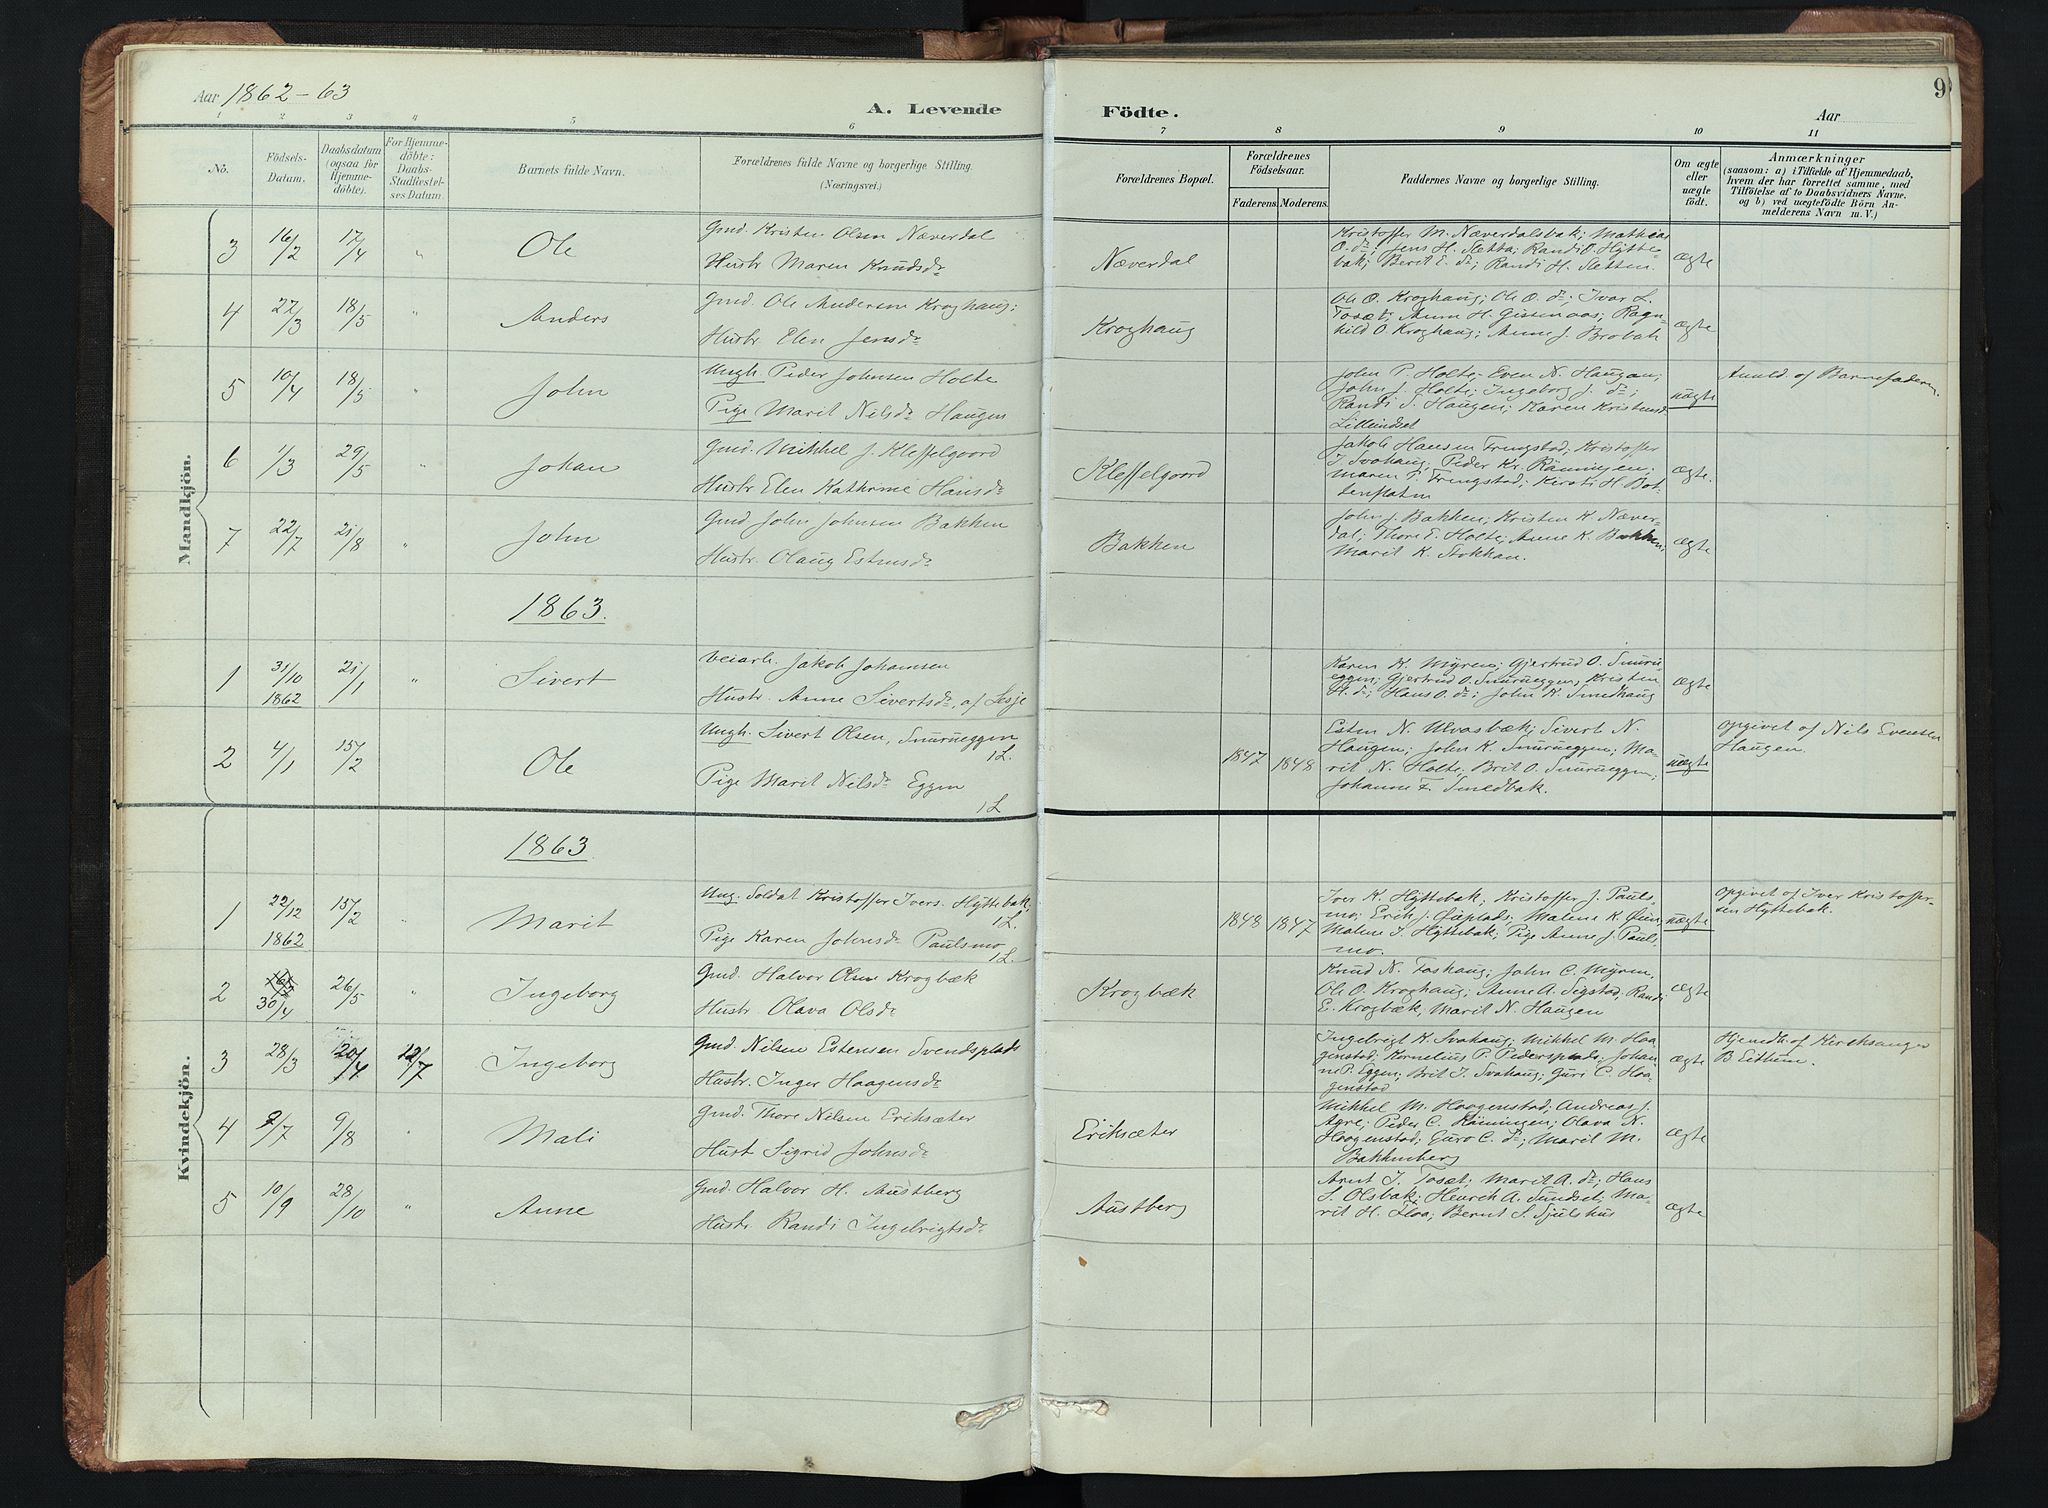 Aar 1862-63
A. Levende Födte.
Aar
9
1 2 3 4 5 6 7 8 9 10 11
No.
Födsels-
Datum.
Daabsdatum
(ogsaa for
Hjemme-
döbte).
For Hjemme-
döbte:
Daabs-
Stadfæstel-
ses Datum.
Barnets fulde Navn.
Forældrenes fulde Navne og borgerlige Stilling.
(Næringsvei.)
Forældrenes Bopæl.
Forældrenes
Födselsaar.
Faderens. Moderens.
Faddernes Navne og borgerlige Stilling.
Om ægte
eller
uægte
födt.
Anmærkninger
(saasom: a) i Tilfælde af Hjemmedaab,
hvem der har forrettet samme, med
Tilföielse af to Daabsvidners Navne,
og b) ved uægtefödte Börn An-
melderens Navn m. V.)
Mandkjön.
3 16/2 17/4 " Ole
Gmd. Kristen Olsen Næverdal
Hustr. Maren Knudsdr
Næverdal
Kristoffer M. Næverdalsbak; Mathias
O. do; Jens H. Sletta; Randi O. Hytte-
bak; Berit E. do; Randi H. Sletten.
ægte
4 22/3 18/5 " Anders
Gmd. Ole Andersen Kroghaug;
Hustr. Elen Jensdr
Kroghaug
Ole O. Kroghaug; Ole O. do; Ivar L.
Tosæt; Anne H. Gissinaas; Ragn-
hild O. Kroghaug; Anne J. Brobak
ægte
5 10/4 18/5 " John
Ungk. Peder Johnsen Holte
Pige Marit Nilsdr Haugen
John P. Holte; Even N. Haugen;
John J. Holte; Ingeborg J. do;
Randi S. Haugen; Karen Kristensd
Lilleindset
uægte
Anmeld. af Barnefaderen.
6 1/3 29/5 " Johan
Gmd. Mikkel J. Kleffelgaard
Hustr Elen Kathrine Hansdr
Kleffelgaard
Jakob Hansen Trengstad; Kristoffer
J. Svahaug; Peder Kr. Rönningen;
Maren P. Trengstad; Kirsti H. Bot-
tenflaten
ægte.
7 22/7 21/8 " John
Gmd John Johnsen Bakken
Hustr. Olaug Estensdr
Bakken
John J. Bakken; Kristen K. Næver-
dal; Thore E. Holte; Anne K. Bakken;
Marit K. Stokkan.
ægte
1863.
1 31/10 1862 21/1 " Sivert
Veiarb. Jakob Johansen
Hustr. Anne Sivertsdr, af Lesje
Karen K. Myren; Gjertrud O. Snuru-
eggen; Gjertrud O. Snurueggen; Kristen
H. do; Hans O. do; John K. Smedhaug
ægte
2 4/1 15/2 Ole
Ungk. Sivert Olsen, Snurueggen
1 L.
Pige Marit Nilsdr Eggen
1 L
1847 1848
Esten N. Ulvasbæk; Sivert N.
Haugen; John K. Snurueggen; Ma-
rit N. Holte; Brit O. Snurueggen;
Johanne E. Smedbak.
uægte
opgivet af Nils Evensen
Haugen.
Kvindekjön.
1863.
1 22/12 1862 15/2 " Marit
Ung. Soldat Kristoffer Ivers. Hyttebak,
1 L.
Pige Karen Johnsdr Paulsmo
1 L.
1848 1847
Iver K. Hyttebak; Kristoffer J. Pauls-
mo; Erik J. Öieplads; Malene K. Öien
Malene I. Hyttebak; Pige Anne J. Pauls-
mo.
uægte
opgivet af Iver Kristoffer-
sen Hyttebak.
2 30/4 26/5 " Ingeborg
Gmd. Halvor Olsen Krogbæk
Hustr. Olava Olsdr
Krogbæk
Knud N. Foshaug; John C. Myren,
Ole O. Kroghaug; Anne A. Sigstad; Randi
E. Krogbæk; Marit N. Haugen
ægte
3 28/3 20/4 12/7 Ingeborg
Gmd. Nilsen Estensen Svendsplads
Hustr. Inger Haagensdr
Ingebrigt K. Svahaug; Mikkel M. Haa-
genstad; Kornelius P. Pedersplads; Johan-
ne P. Eggen; Brit J. Svahaug; Guri C. Haa-
genstad
ægte
Hjemdb. af Kirksanger
B. Eithun.
4 7/7 9/8 " Mali
Gmd. Thore Nilsen Eriksæter
Hust Sigrid Johnsdr
Eriksæter
Mikkel M. Haagenstad; Andreas J.
Agre; Peder C. Rönningen; Olava K.
Haagenstad; Guro C. do; Marit M.
Bakkenberg
ægte
5 10/9 28/10 " Anne
Gmd. Halvor H. Austberg
Hustr. Randi Ingebrigtsdr
Austberg
Arnt J. Tosæt; Marit A. do; Hans
S. Olsbak; Henrik A. Sundset; Ma-
rit H. Floa; Bernt S. Sjulshus
ægte